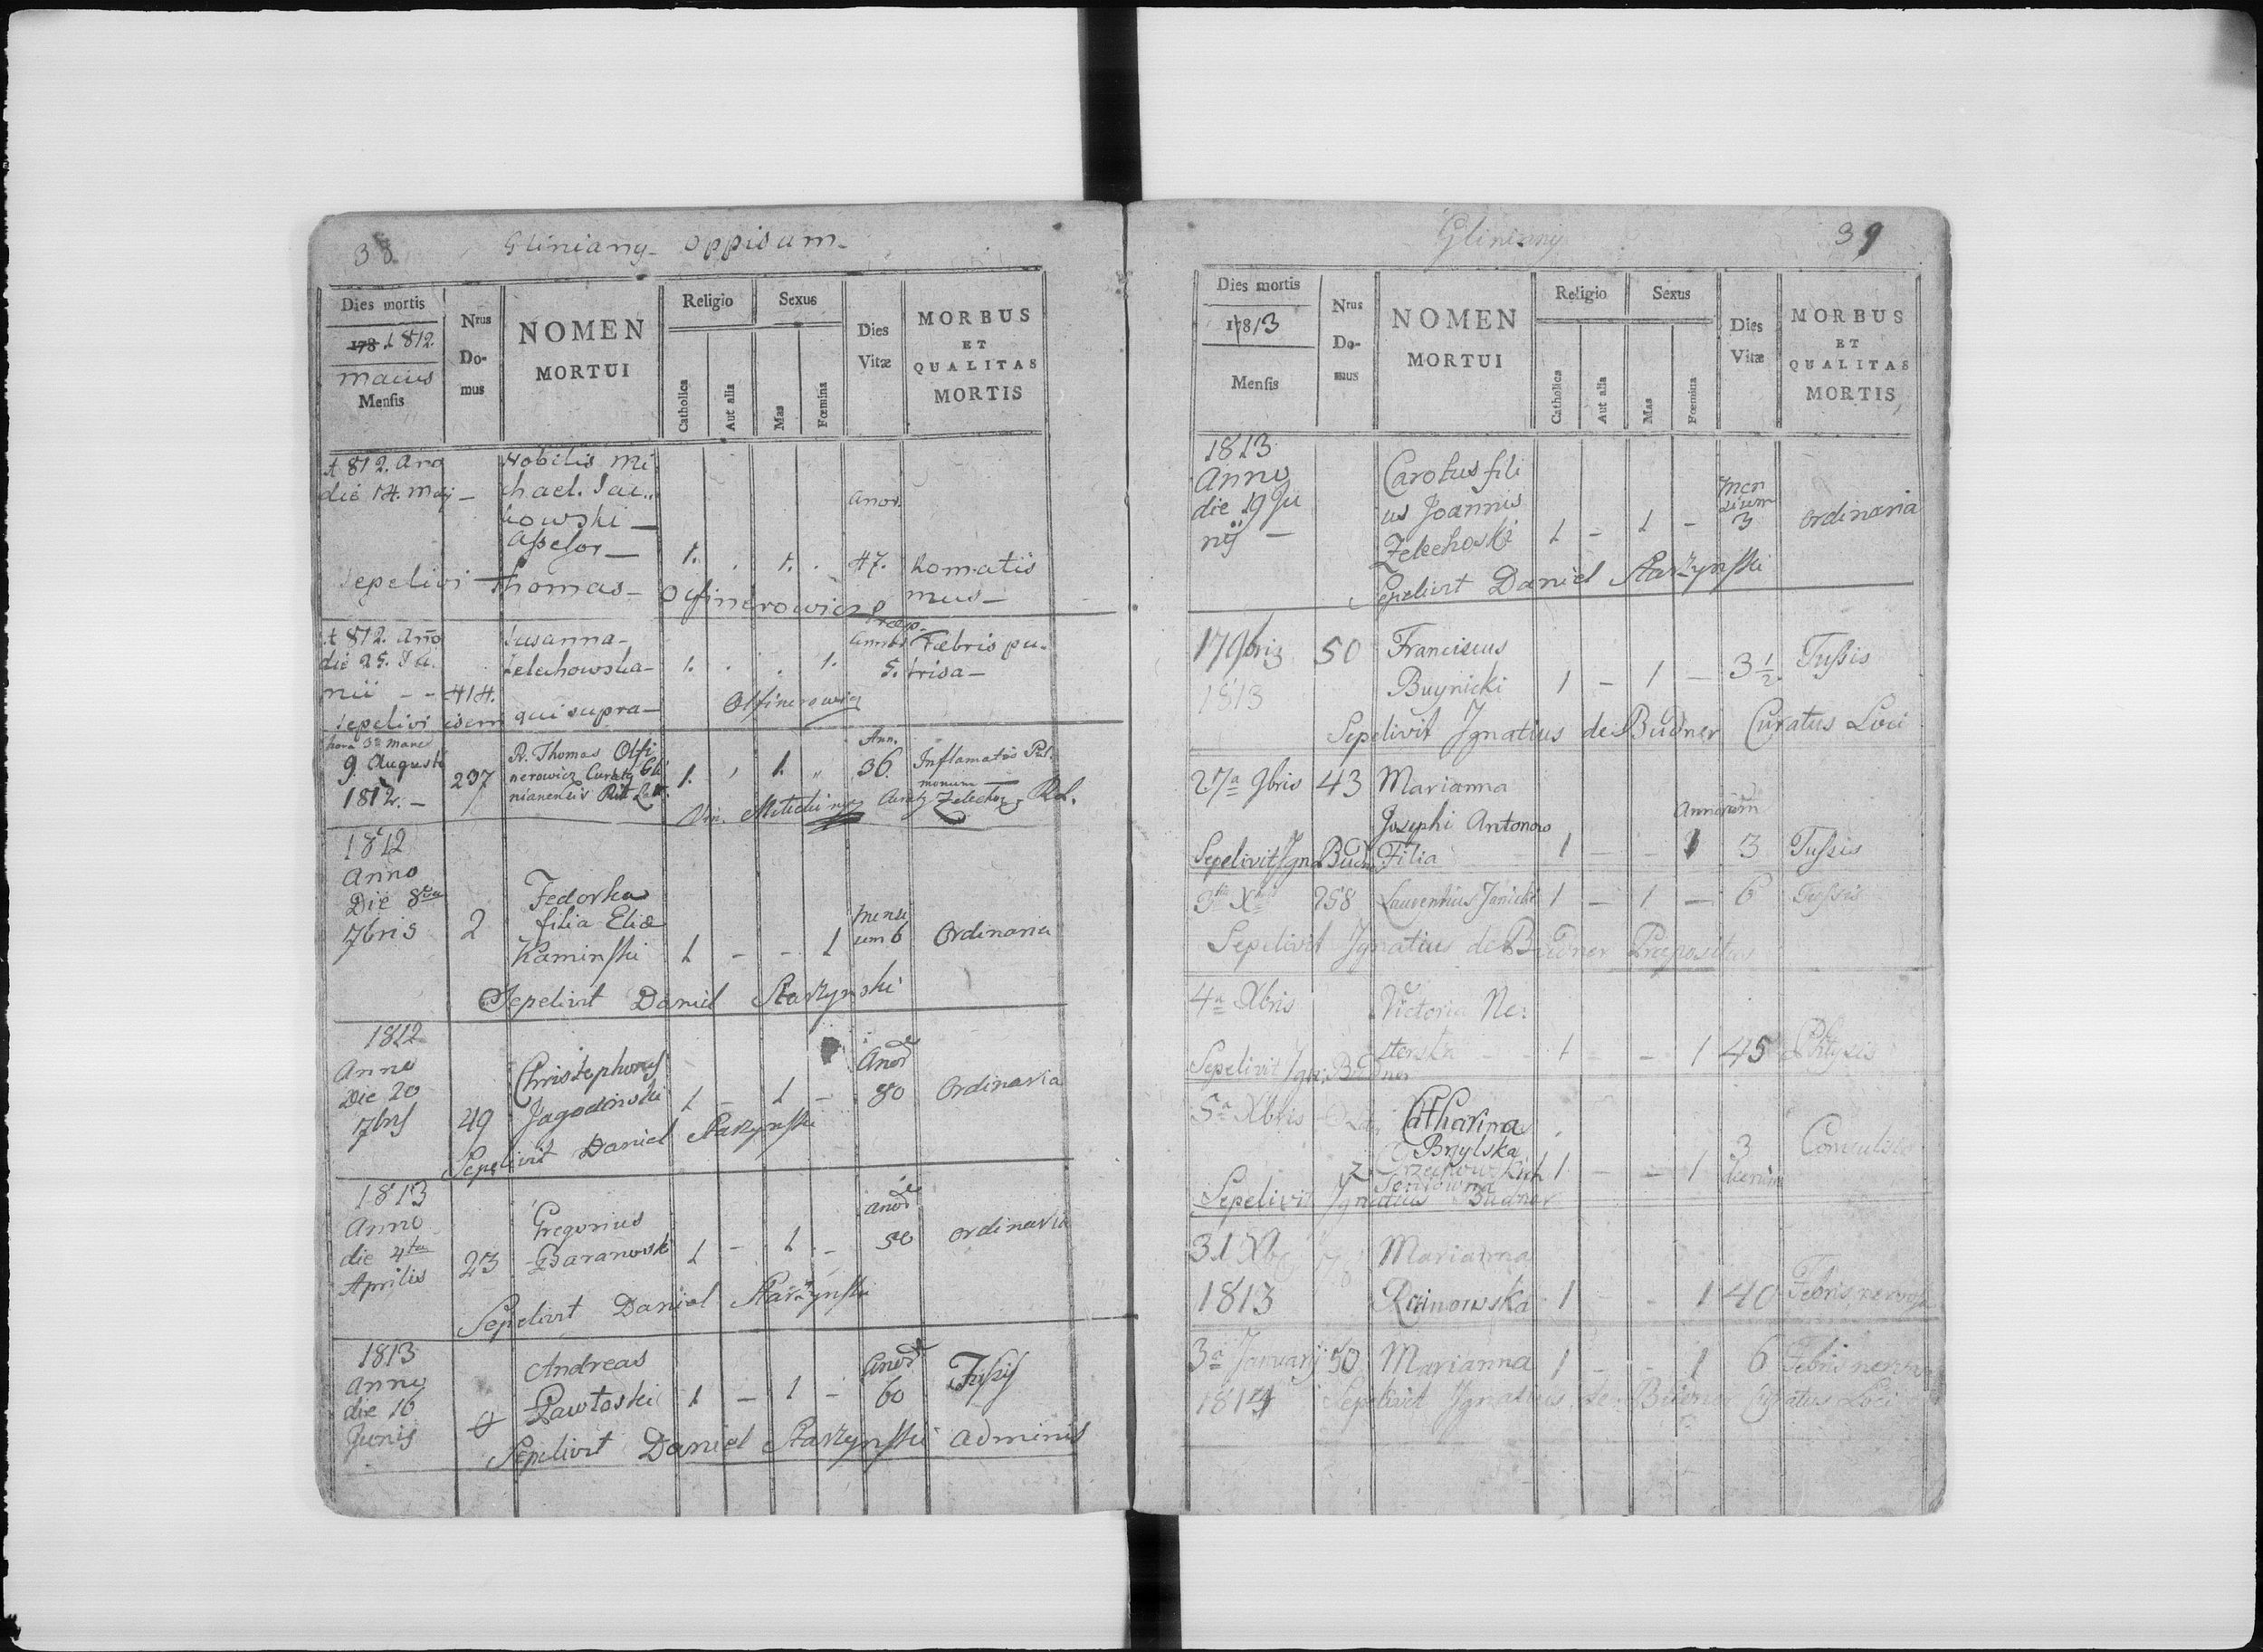 38 Gliniany oppidum
Dies mortis
178 1812.
Maius
Mensis
Nrus
Do-
mus
NOMEN
MORTUI
Religio
Catholica
Aut alia
Sexus
Mas
Fœmina
Dies
Vitæ
MORBUS
ET
QUALITAS
MORTIS
1812. Ano Nobilis Mi
die 14. Maij chael
kowski Anor.
Assesor 1. . 1. . 47.
Sepelivi Thomas Olfinerowicz
1812. Ano Susanna Annor Faebris pu
die 25. Ju Zelechowska 1. . . 1. 5. trida
nii 414.
Sepelivi idem qui supra Olfinerowicz
hora 3a mane
9. Augusti R. Thomas Olfi Ann. Inflamatio Pul
1812. 237 nerowicz Curatg Gli 1. , 1. „ 36. monum
nianensis Rit. Lat.
1812
Anno
Die 8va Fedorka
7bris 2 filia Eliæ mensi
Kaminski 1 - - 1 um 6 Ordinaria
Sepelivit Daniel Starzynski
1812
Anno Christephorus Anor
Die 20 Jagodinski 1 - 1 - 80 Ordinaria
7bris 49
Sepelivit Daniel Starzynski
1813
Anno Gregorius Anor
die 4ta 23 Baranowski 1 - 1 - 50 ordinaria
Aprilis
Sepelivit Daniel Starzynski
1813
Anno Andreas Anor Tussis
die 16 9 Pawłoski 1 - 1 - 60
Junij
Sepelivit Daniel Starzynski Adminis
Gliniany 39
Dies mortis
17813
Mensis
Nrus
Do-
mus
NOMEN
MORTUI
Religio
Catholica
Aut alia
Sexus
Mas
Fœmina
Dies
Vitæ
MORBUS
ET
QUALITAS
MORTIS
1813
Anno Carolus fili
die 19 Ju us Joannis men
nij Zelechoski 1 - 1 - sium 3 ordinaria
Sepelivit Daniel Starzynski
17 9bris 50 Franciscus
1813 Buynicki 1 - 1 - 3 1/2 Tussis
Sepelivit Ignatius de Budner Curatus Loci
27a 9bris 43 Marianna
Josephi Antonow Annorum
Sepelivit Ign Budn Filia 1 - - 1 3 Tussis
3tia Xbris 258 Laurentius Janicki 1 - 1 - 6 Tussis
Sepelivit Ignatius de Budner Præpositus
4a Xbris Victoria Ne:
sterska 1 - - 1 45 Phtysis
Sepelivit Ign: Budner
5a Xbris Catharina
Brylska 3 Convulsio
1 - - 1 dierum
Sepelivit Ignatius Budner
31 Xb Marianna
1813 Rainowska 1 - - 1 40 Febris nervosa
3a January 50 Marianna 1 - - 1 6 Febris nervosa
1814 Sepelivit Ignatius de Budner Curatus Loci